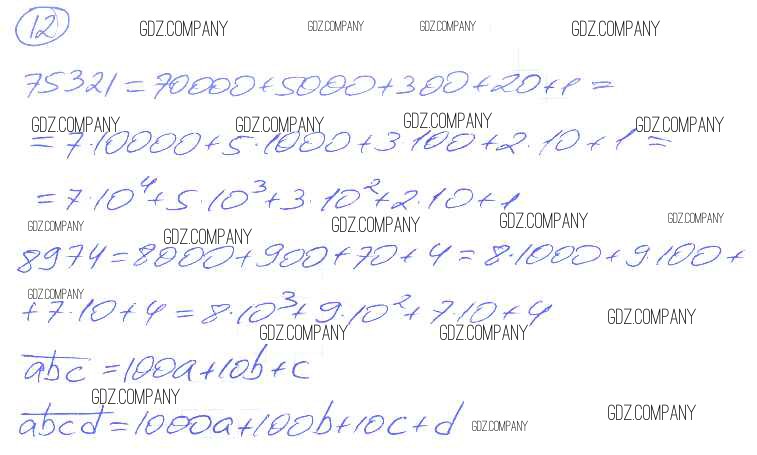 12 GDZ.COMPANY GDZ.COMPANY GDZ.COMPANY GDZ.COMPANY
75321=70000+5000+300+20+1=
GDZ.COMPANY GDZ.COMPANY GDZ.COMPANY GDZ.COMPANY
=7·10000+5·1000+3·100+2·10+1=
=7·10⁴+5·10³+3·10²+2·10+1
GDZ.COMPANY GDZ.COMPANY GDZ.COMPANY GDZ.COMPANY GDZ.COMPANY
8974=8000+900+70+4=8·1000+9·100+
GDZ.COMPANY
+7·10+4=8·10³+9·10²+7·10+4 GDZ.COMPANY
GDZ.COMPANY GDZ.COMPANY
a̅b̅c̅=100a+10b+c
GDZ.COMPANY
a̅b̅c̅d̅=1000a+100b+10c+d GDZ.COMPANY GDZ.COMPANY